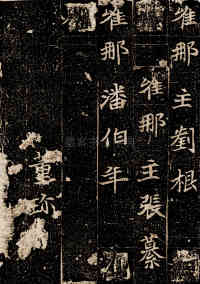 維那主劉根
維那主張
維那潘伯年
董弥